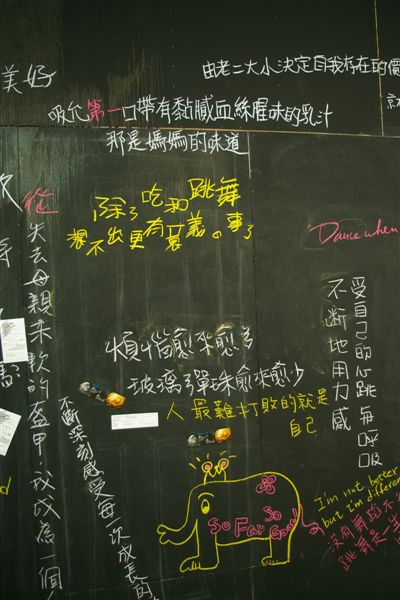 美好
由老二大小決定自我存在的價
吸允第一口帶有黏膩血絲腥味的乳汁
那是媽媽的味道
除了吃和跳舞
想不出更有意義的事了
Dance when
從失去母親柔軟的盔甲,我成為一個
受自己的心跳每個呼吸
不斷地用力感
煩惱愈來愈多
玻璃彈珠愈來愈少
人最難打敗的就是
自己
不斷深刻感受每一次成長的
So Far So Good
I'm not better
but I'm different
沒有舞蹈